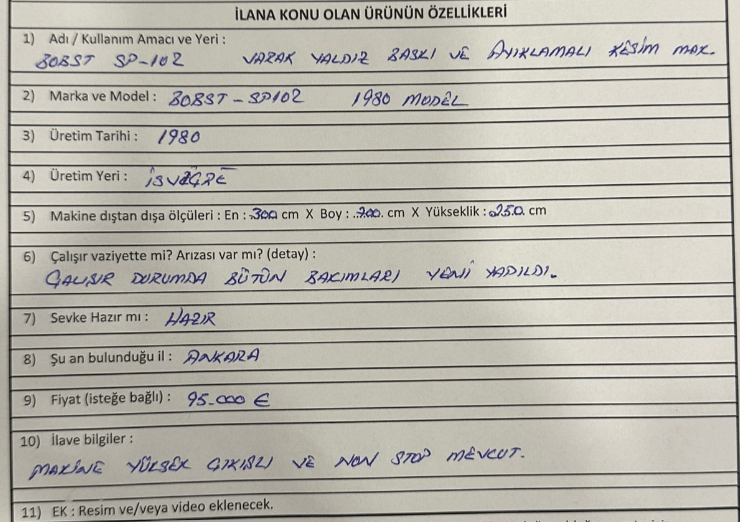 İLANA KONU OLAN ÜRÜNÜN ÖZELLİKLERİ
1) Adı / Kullanım Amacı ve Yeri :
BOBST SP-102 VARAK YALDIZ BASKI VE AYIKLAMALI KESİM MAK.
2) Marka ve Model : BOBST - SP102 1980 MODEL
3) Üretim Tarihi : 1980
4) Üretim Yeri : İSVİÇRE
5) Makine dıştan dışa ölçüleri : En : 300 cm X Boy : 700. cm X Yükseklik : 250. cm
6) Çalışır vaziyette mi? Arızası var mı? (detay) :
ÇALIŞIR DURUMDA BÜTÜN BAKIMLARI YENİ YAPILDI.
7) Sevke Hazır mı : HAZIR
8) Şu an bulunduğu il : ANKARA
9) Fiyat (isteğe bağlı) : 95.000 €
10) İlave bilgiler :
MAKİNE YÜKSEK ÇIKIŞLI VE NON STOP MEVCUT.
11) EK : Resim ve/veya video eklenecek.